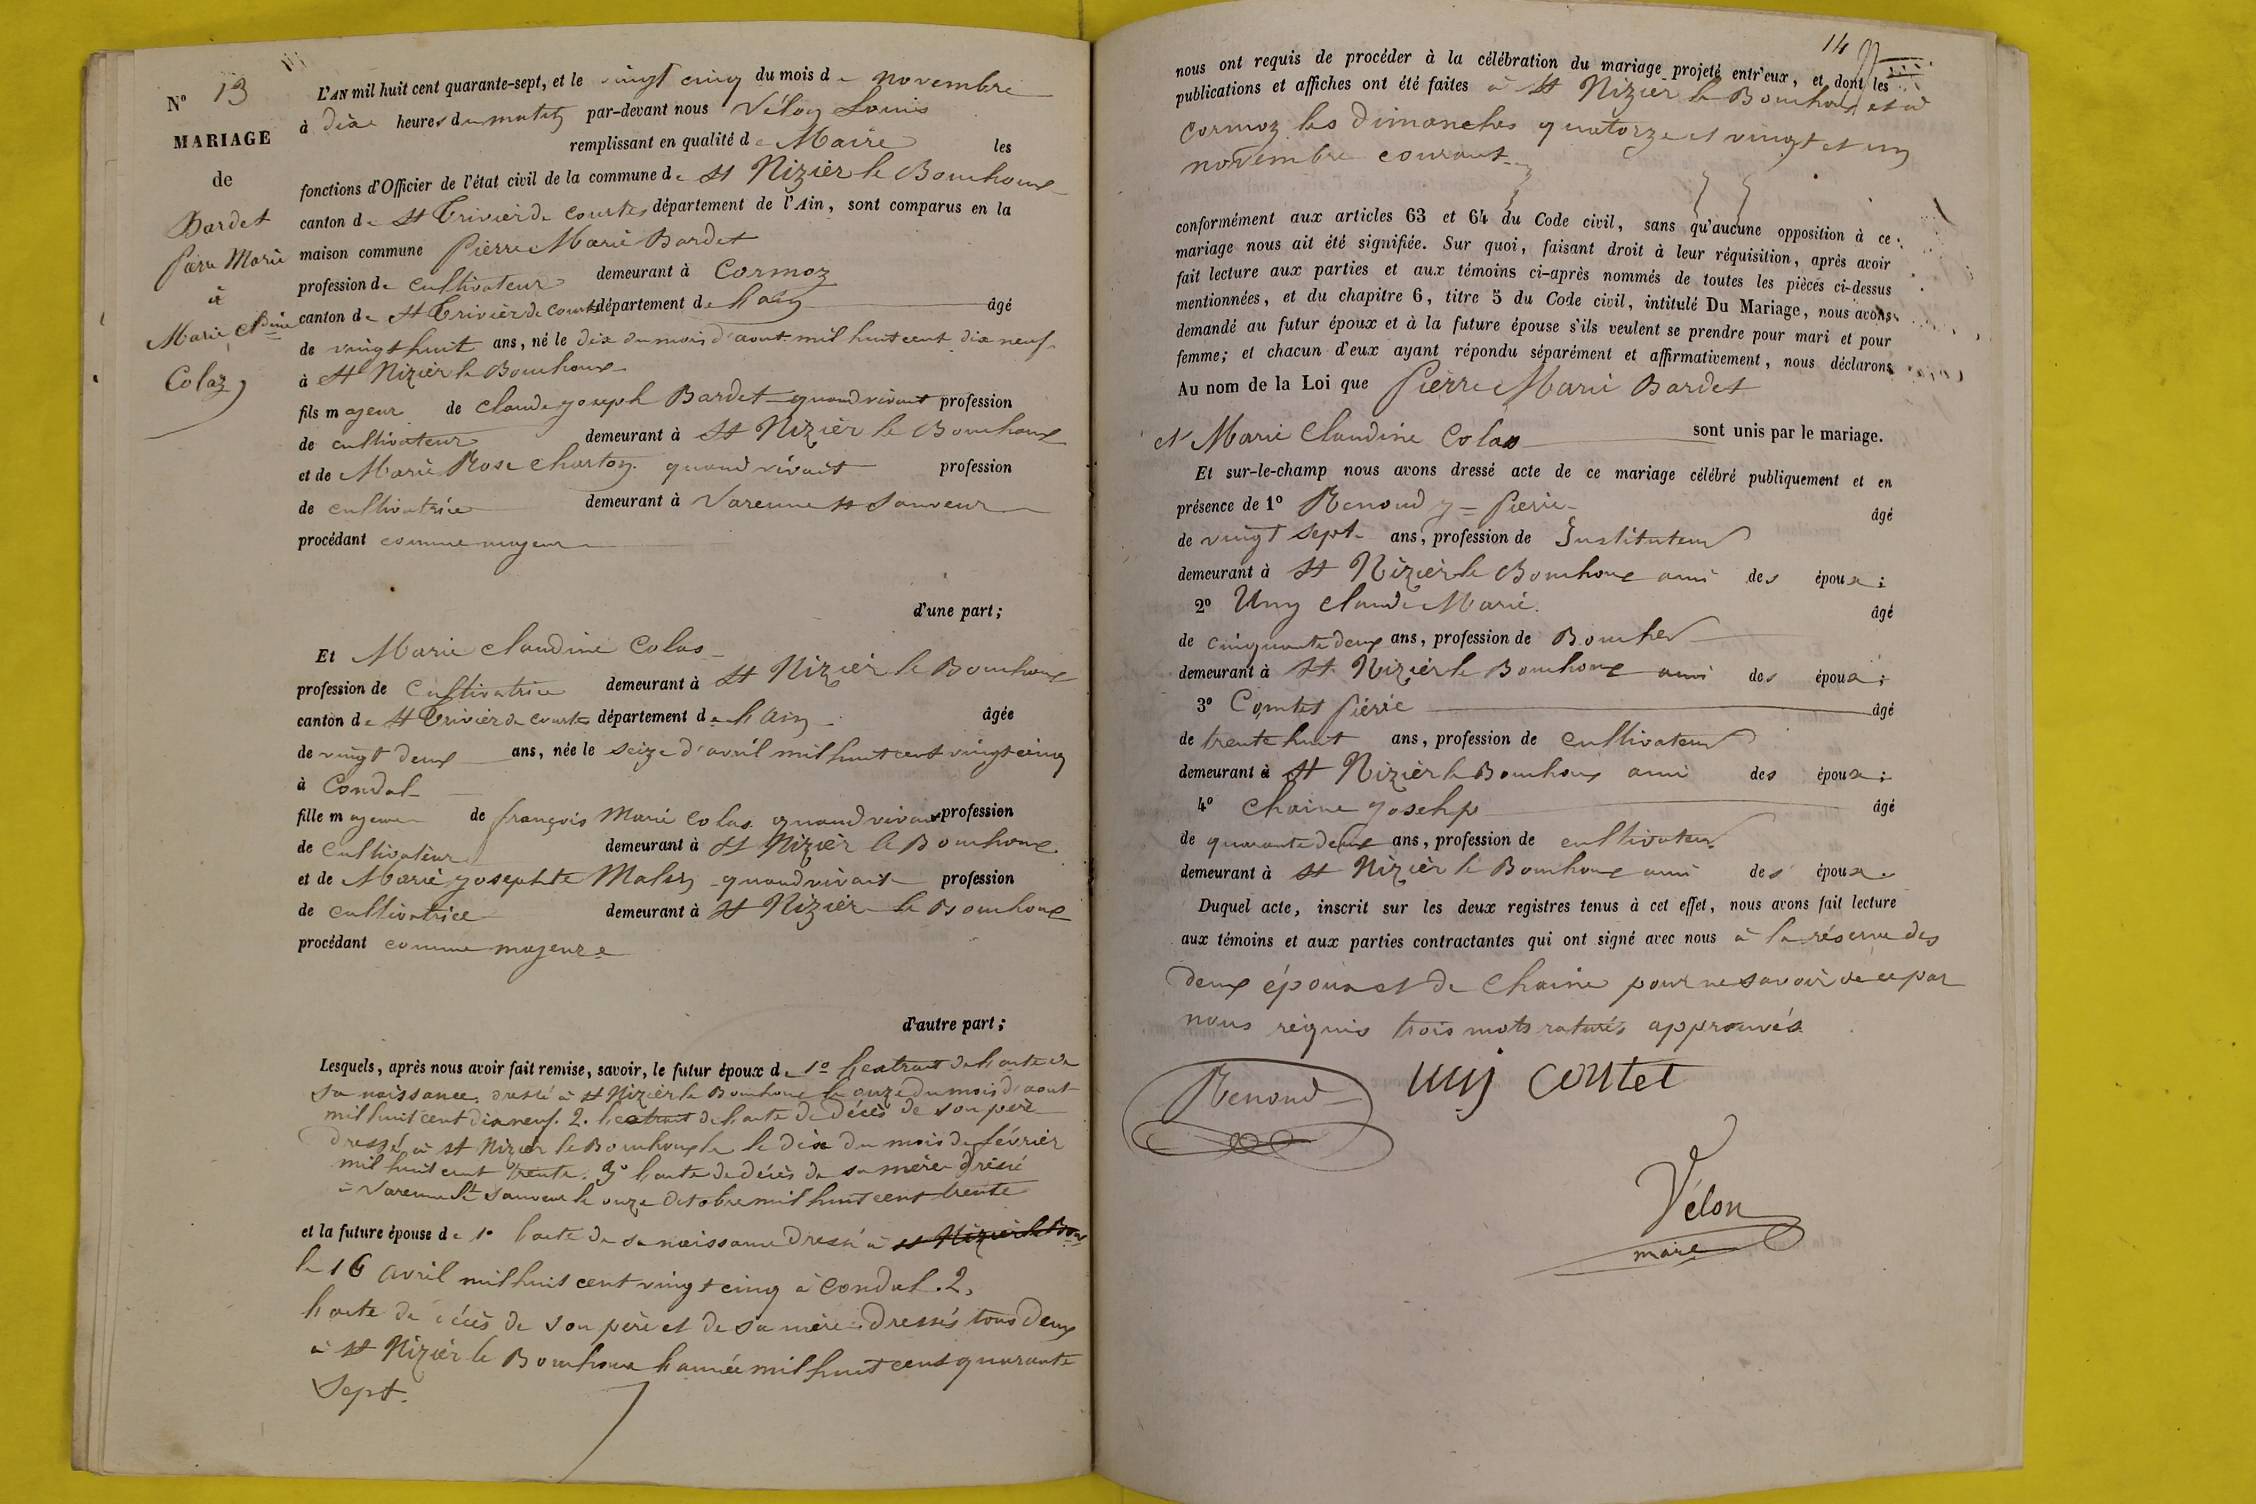 N° 13
MARIAGE
de
Bardet
Pierre Marie
à
Marie Cldine
Colaz
L'AN mil huit cent quarante-sept, et le vingt cinq du mois de novembre
à dix heures du matin par-devant nous Vélon Louis
remplissant en qualité de Maire les
fonctions d'Officier de l'état civil de la commune de St Nizier le Bouchoux
canton de St Trivier de Courtes département de l'Ain, sont comparus en la
maison commune Pierre Marie Bardet
profession de cultivateur demeurant à Cormoz
canton de St Trivier de Courtes département de l'ain âgé
de vingt huit ans, né le dix du mois d'aout mil huit cent dix neuf
à St Nizier le Bouchoux
fils majeur de Claude joseph Bardet quand vivait profession
de cultivateur demeurant à St Nizier le Bouchoux
et de Marie Rose Charton quand vivait profession
de cultivatrice demeurant à Varenne St Sauveur
procédant comme majeur
d'une part;
Et Marie Claudine Colas
profession de Cultivatrice demeurant à St Nizier le Bouchoux
canton de St Trivier de Courtes département de l'Ain âgée
de vingt deux ans, née le seize d'avril mil huit cent vingt cinq
à Condal
fille majeure de françois Marie Colas quand vivait profession
de Cultivateur demeurant à St Nizier le Bouchoux
et de Marie josephte quand vivait profession
de cultivatrice demeurant à St Nizier le Bouchoux
procédant comme majeure
d'autre part;
Lesquels, après nous avoir fait remise, savoir, le futur époux de 1° l'extrait de l'acte de
sa naissance, dressé à St Nizier le Bouchoux le onze du mois d'aout
mil huit cent dix neuf. 2. l'extrait de l'acte de décès de son père
dressé à St Nizier le Bouchoux le le dix du mois de février
mil huit cent trente. 3° l'acte de décès de sa mère dressé
à Varenne St Sauveur le onze octobre mil huit cent trente
et la future épouse de 1° l'acte de sa naissance dressé à St Nizier le Bou
le 16 avril mil huit cent vingt cinq à Condal. 2.
l'acte de décès de son père et de sa mère dressés tous deux
à St Nizier le Bouchoux l'année mil huit cent quarante
sept.
14
nous ont requis de procéder à la célébration du mariage projeté entr'eux, et dont les
publications et affiches ont été faites à St Nizier le Bouchoux et à
Cormoz les dimanches quatorze et vingt et un
novembre courant
conformément aux articles 63 et 64 du Code civil, sans qu'aucune opposition à ce
mariage nous ait été signifiée. Sur quoi, faisant droit à leur réquisition, après avoir
fait lecture aux parties et aux témoins ci-après nommés de toutes les pièces ci-dessus
mentionnées, et du chapitre 6, titre 5 du Code civil, intitulé Du Mariage, nous avons
demandé au futur époux et à la future épouse s'ils veulent se prendre pour mari et pour
femme; et chacun d'eux ayant répondu séparément et affirmativement, nous déclarons
Au nom de la Loi que Pierre Marie Bardet
et Marie Claudine Colas sont unis par le mariage.
Et sur-le-champ nous avons dressé acte de ce mariage célébré publiquement et en
présence de 1° Renoud Pierre âgé
de vingt sept ans, profession de Instituteur
demeurant à St Nizier le Bouchoux ami des époux;
2° Uny Claude Marie. âgé
de cinquante deux ans, profession de Boucher
demeurant à St Nizier le Bouchoux ami des époux;
3° Comtet Pierre âgé
de trente huit ans, profession de cultivateur
demeurant à St Nizier le Bouchoux ami des époux;
4° Chaine Josehp âgé
de quarante deux ans, profession de cultivateur
demeurant à St Nizier le Bouchoux ami des époux.
Duquel acte, inscrit sur les deux registres tenus à cet effet, nous avons fait lecture
aux témoins et aux parties contractantes qui ont signé avec nous à la réserve des
deux époux et de Chaine pour ne savoir de ce par
nous requis trois mots raturés approuvés
Renoud Uny Contet
Vélon
maire